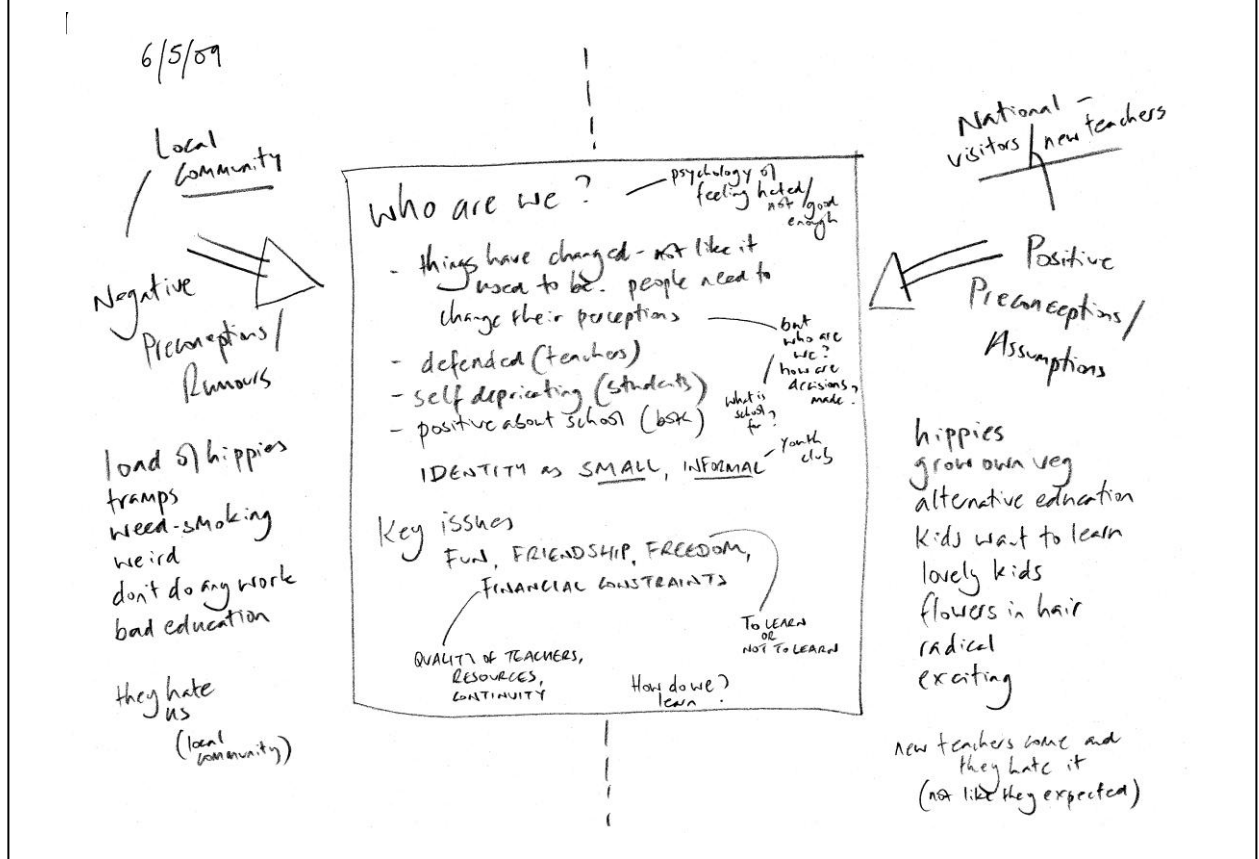 6/5/09
Local
Community
Negative
Preconceptions/
Rumours
load of hippies
tramps
weed-smoking
weird
don't do any work
bad education
they hate
us
(local
community)
who are we?
psychology of
feeling hated/
not good
enough
- things have changed - not like it
used to be. people need to
change their perceptions
but
who are
we?
how are
decisions
made?
- defended (teachers)
- self depricating (students)
- positive about school (both)
what is
school
for?
IDENTITY as SMALL, INFORMAL
youth
club
Key issues
FUN, FRIENDSHIP, FREEDOM,
FINANCIAL CONSTRAINTS
QUALITY OF TEACHERS,
RESOURCES,
CONTINUITY
TO LEARN
OR
NOT TO LEARN
How do we
learn?
National -
visitors / new teachers
Positive
Preconceptions/
Assumptions
hippies
grow own veg
alternative education
kids want to learn
lovely kids
flowers in hair
radical
exciting
new teachers come and
they hate it
(not like they expected)